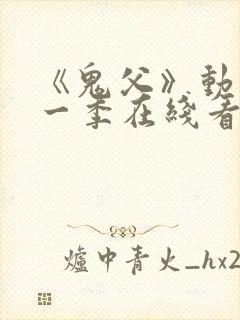 《鬼父》動
一季在綫看
爐中青火_hx2